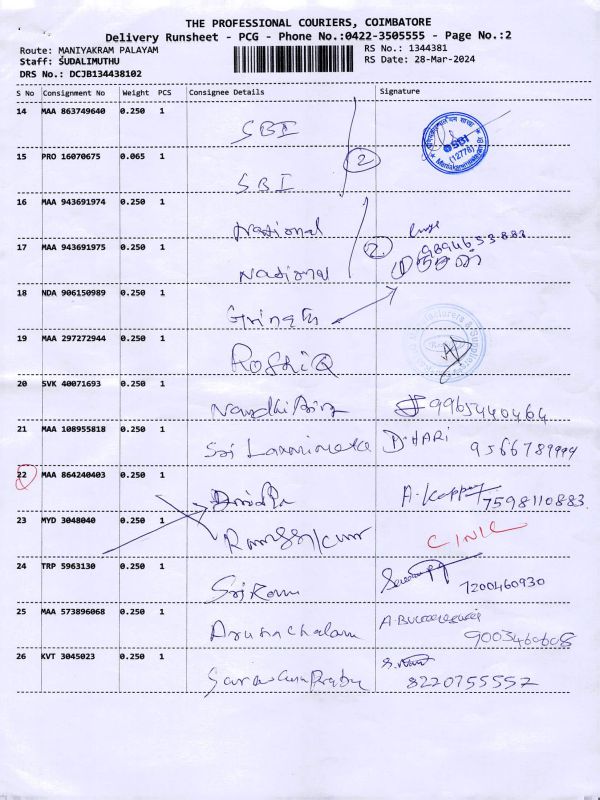 THE PROFESSIONAL COURIERS, COIMBATORE
Delivery Runsheet - PCG - Phone No.:0422-3505555 - Page No.:2
Route: MANIYAKRAM PALAYAM RS No.: 1344381
Staff: SUDALIMUTHU RS Date: 28-Mar-2024
DRS No.: DCJB134438102
S No Consignment No Weight PCS Consignee Details Signature
14 MAA 863749640 0.250 1 SBI
SBI
(12778)
15 PRO 16070675 0.065 1 SBI 2
16 MAA 943691974 0.250 1 National
9894653883
17 MAA 943691975 0.250 1 National 2
18 NDA 906150989 0.250 1
19 MAA 297272944 0.250 1 ROSHIQ
20 SVK 40071693 0.250 1 9965440464
21 MAA 108955818 0.250 1 Sri D.HARI
22 MAA 864240403 0.250 1 7598110883
23 MYD 3048040 0.250 1
24 TRP 5963130 0.250 1 Sri Ram 7200460930
25 MAA 573896068 0.250 1 Arunachalam 9003460608
26 KVT 3045023 0.250 1 8220755552